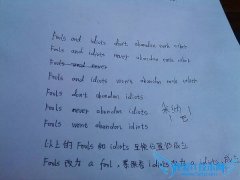 Fools and idiots don't abandon each other
Fools and idiots never abandon each other
Fools and never
Fools and idiots won't abandon each other
Fools don't abandon idiots
Fools never abandon idiots
Fools won't abandon idiots
以上的 Fools 和 idiots 互换位置
Fools 改为 a fool, idiots 改为 a idiots